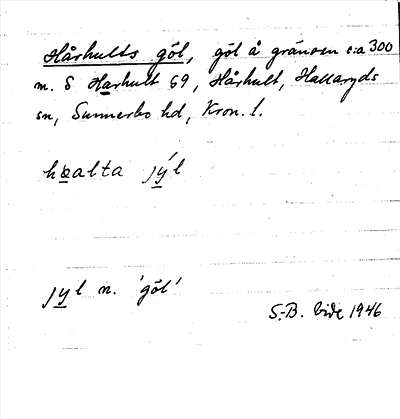 Hårhults göl, göl å gränsen c:a 300
m. S Harhult 69, Hårhult, Hallaryds
sn, Sunnerbo hd, Kron. l.
hɑalta jýl
jyl n. 'göl'
S.-B. Vide 1946